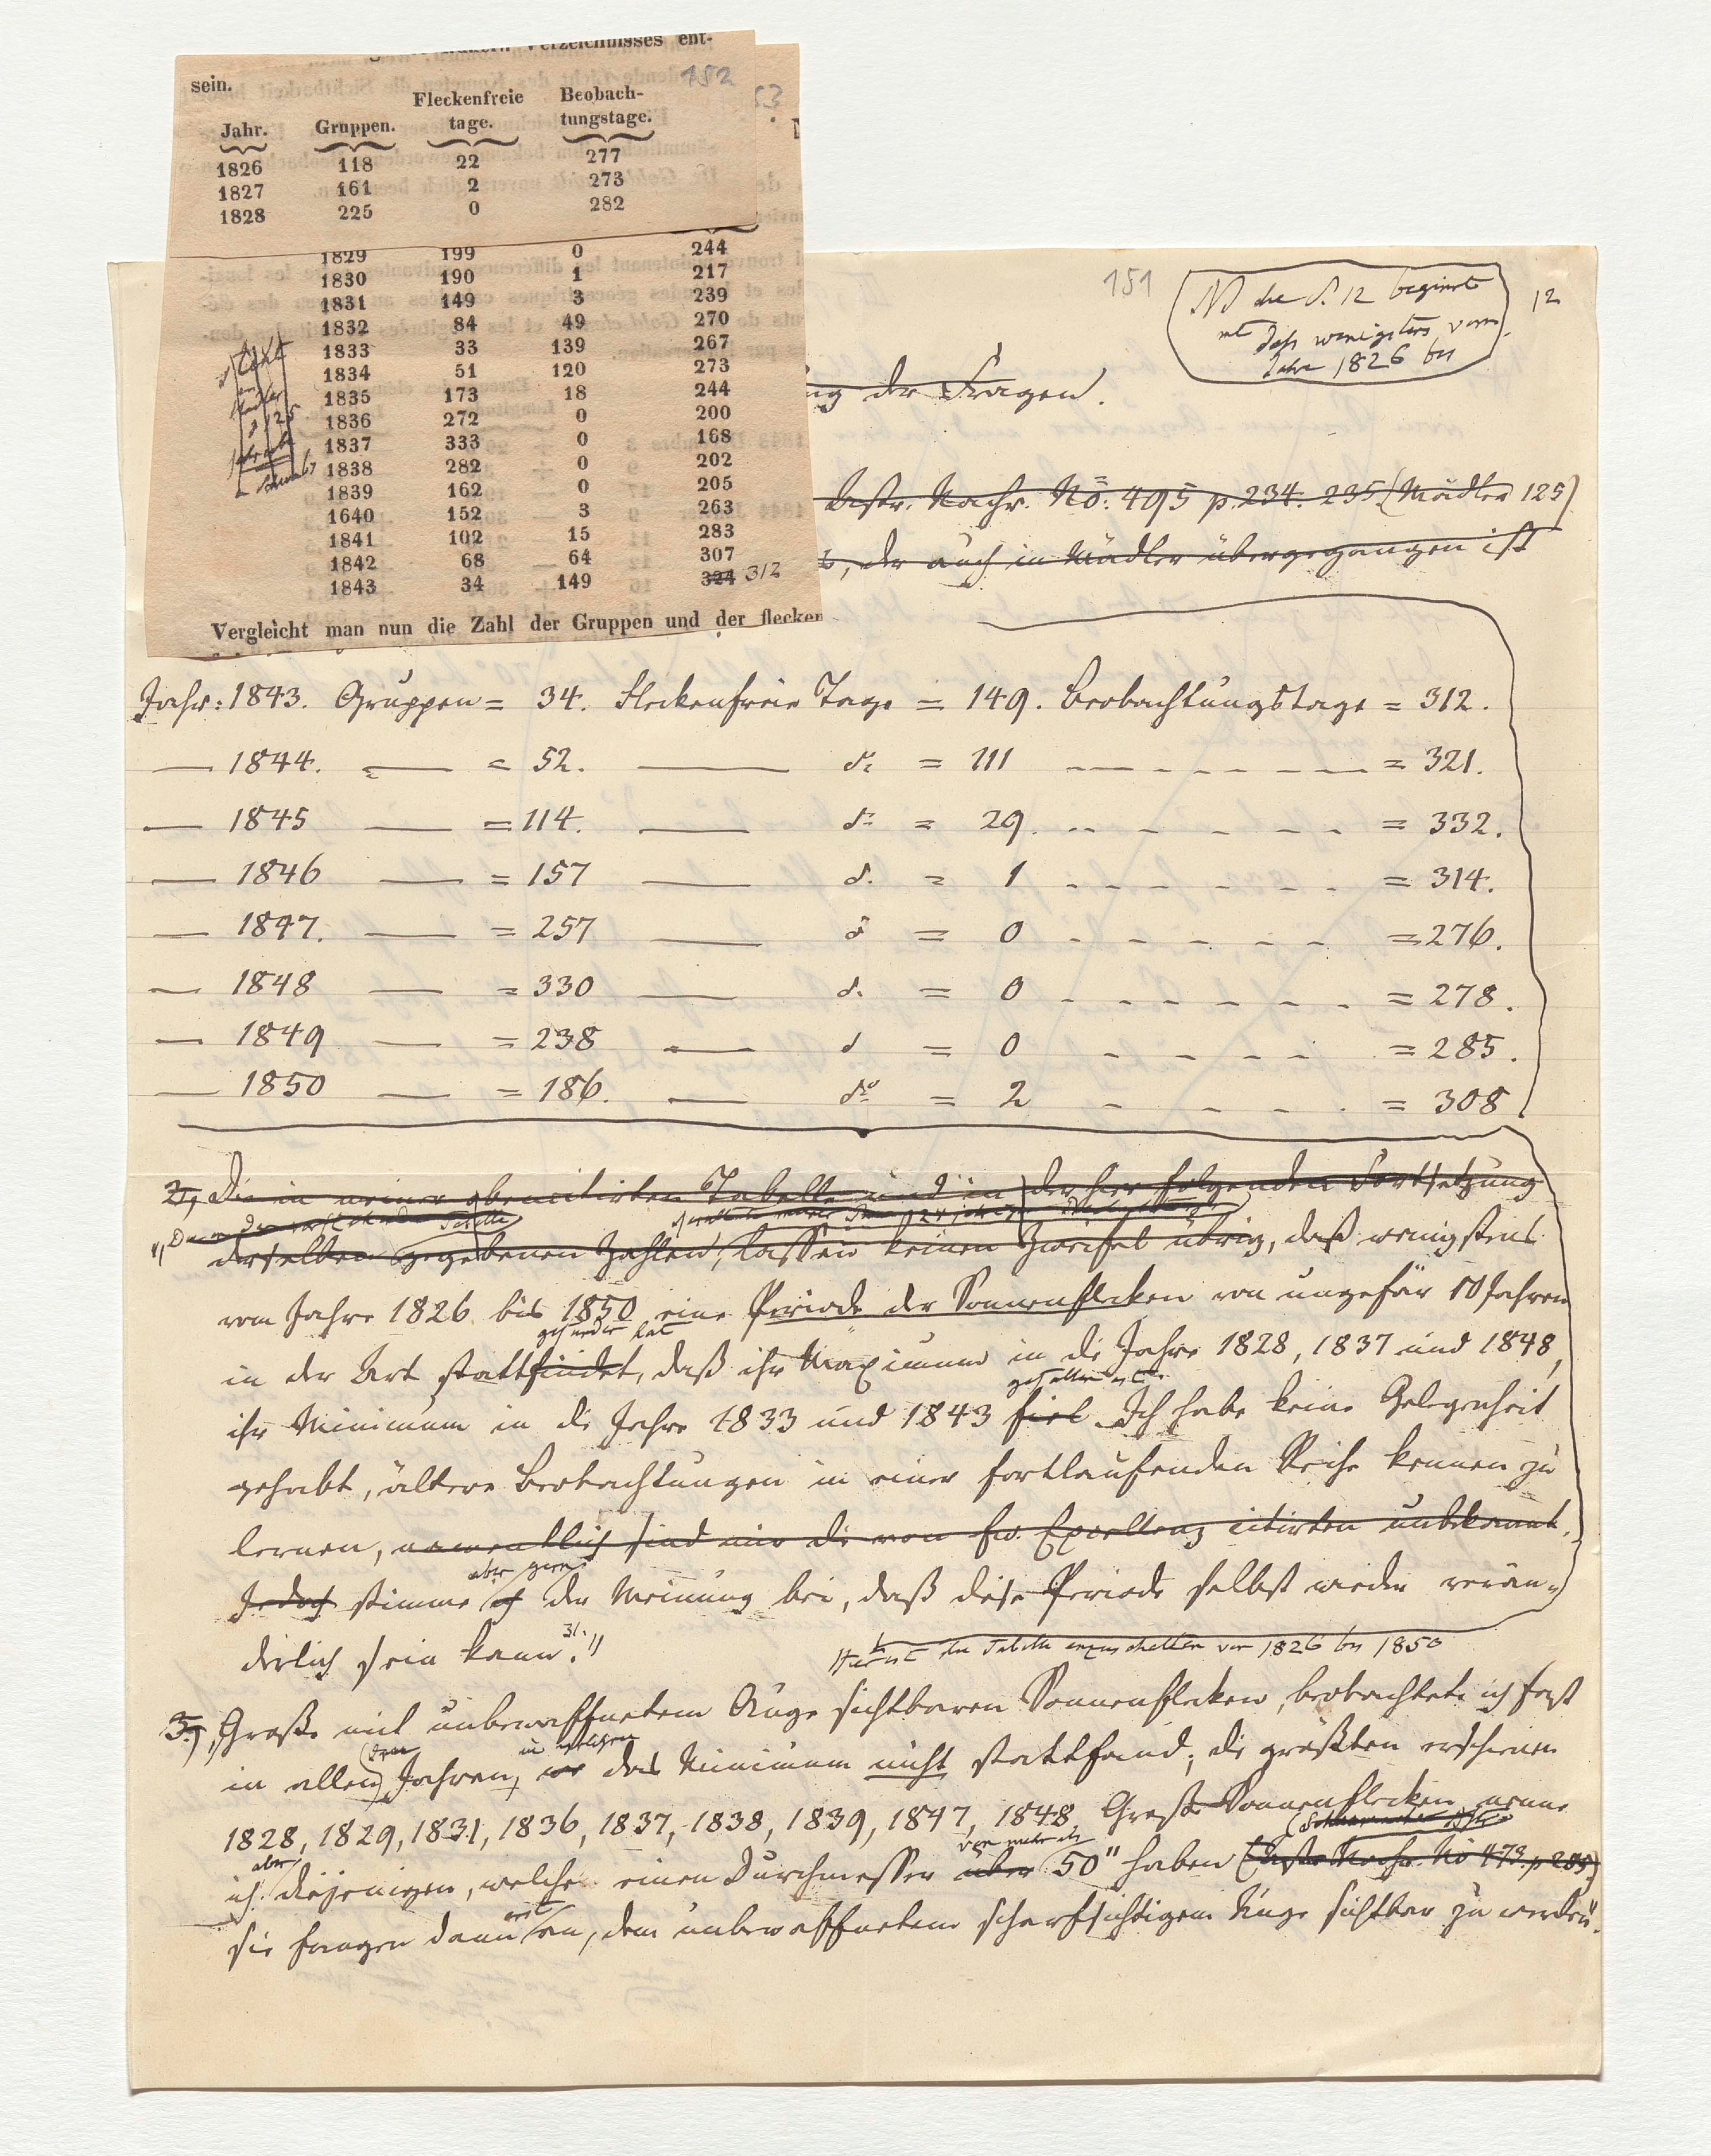 ent-
sein. 152
Jahr. Gruppen. Fleckenfreie tage. Beobach-tungstage.
1826 118 22 277
1827 161 2 273
1828 225 0 282
1829 199 0 244
1830 190 1 217
1831 149 3 239
1832 84 49 270
1833 33 139 267
1834 51 120 273
1835 173 18 244
1836 272 0 200
1837 333 0 168
1838 282 0 202
1839 162 0 205
1640 152 3 263
1841 102 15 283
1842 68 64 307
1843 34 149 324 312
Vergleicht man nun die Zahl der Gruppen und der flecken
151
die S. 12 beginnt
daß wenigstens vom
Jahre 1826 bis
12
der Fragen.
Astr. Nachr. No. 495 p. 234. 235 (Mädler 125)
, der auch in Mädler übergegangen ist
Jahr: 1843. Gruppen = 34. Fleckenfreie Tage = 149. Beobachtungstage = 312.
— 1844. — = 52. — do = 111 — = 321.
— 1845 — = 114. — do = 29. — = 332.
— 1846 — = 157 — do = 1 — = 314.
— 1847. — = 257 — do = 0 — = 276.
— 1848 — = 330 — do = 0 — = 278.
— 1849 — = 238 — do = 0 — = 285.
— 1850 — = 186. — do = 2 — = 308
2, Die in meiner oben citirten Tabelle und in der hier folgenden Fortsetzung
derselben gegebenen Zahlen, lassen keinen Zweifel übrig, daß wenigstens
vom Jahre 1826 bis 1850 eine Periode der Sonnenflecken von ungefär 10 Jahren
gefunden hat
in der Art stattfindet, daß ihr Maximum in die Jahre 1828, 1837 und 1848,
gefallen ist.
ihr Minimum in die Jahre 1833 und 1843 fiel. Ich habe keine Gelegenheit
gehabt, ältere Beobachtungen in einer fortlaufenden Reihe kennen zu
lernen, namentlich sind mir die von Ew. Excellenz citirten unbekannt.
aber gern
Jedoch stimme ich der Meinung bei, daß diese Periode selbst wieder verän-
derlich sein kann." 31.
Hier ist die Tabelle einzuschalten von 1826 bis 1850
3, Große mit unbewaffnetem Auge sichtbaren Sonnenflecken, beobachtete ich fast
in welchen
in allen Jahren, wo das Minimum nicht stattfand; die größten erschienen
1828, 1829, 1831, 1836, 1837, 1838, 1839, 1847, 1848. Große Sonnenflecken nenne
aber von mehr als
ich diejenigen, welche einen Durchmesser über 50" haben (Astr. Nachr. No 473. p 285)
erst
sie fangen dann an, dem unbewaffneten scharfsichtigem Auge sichtbar zu werden.